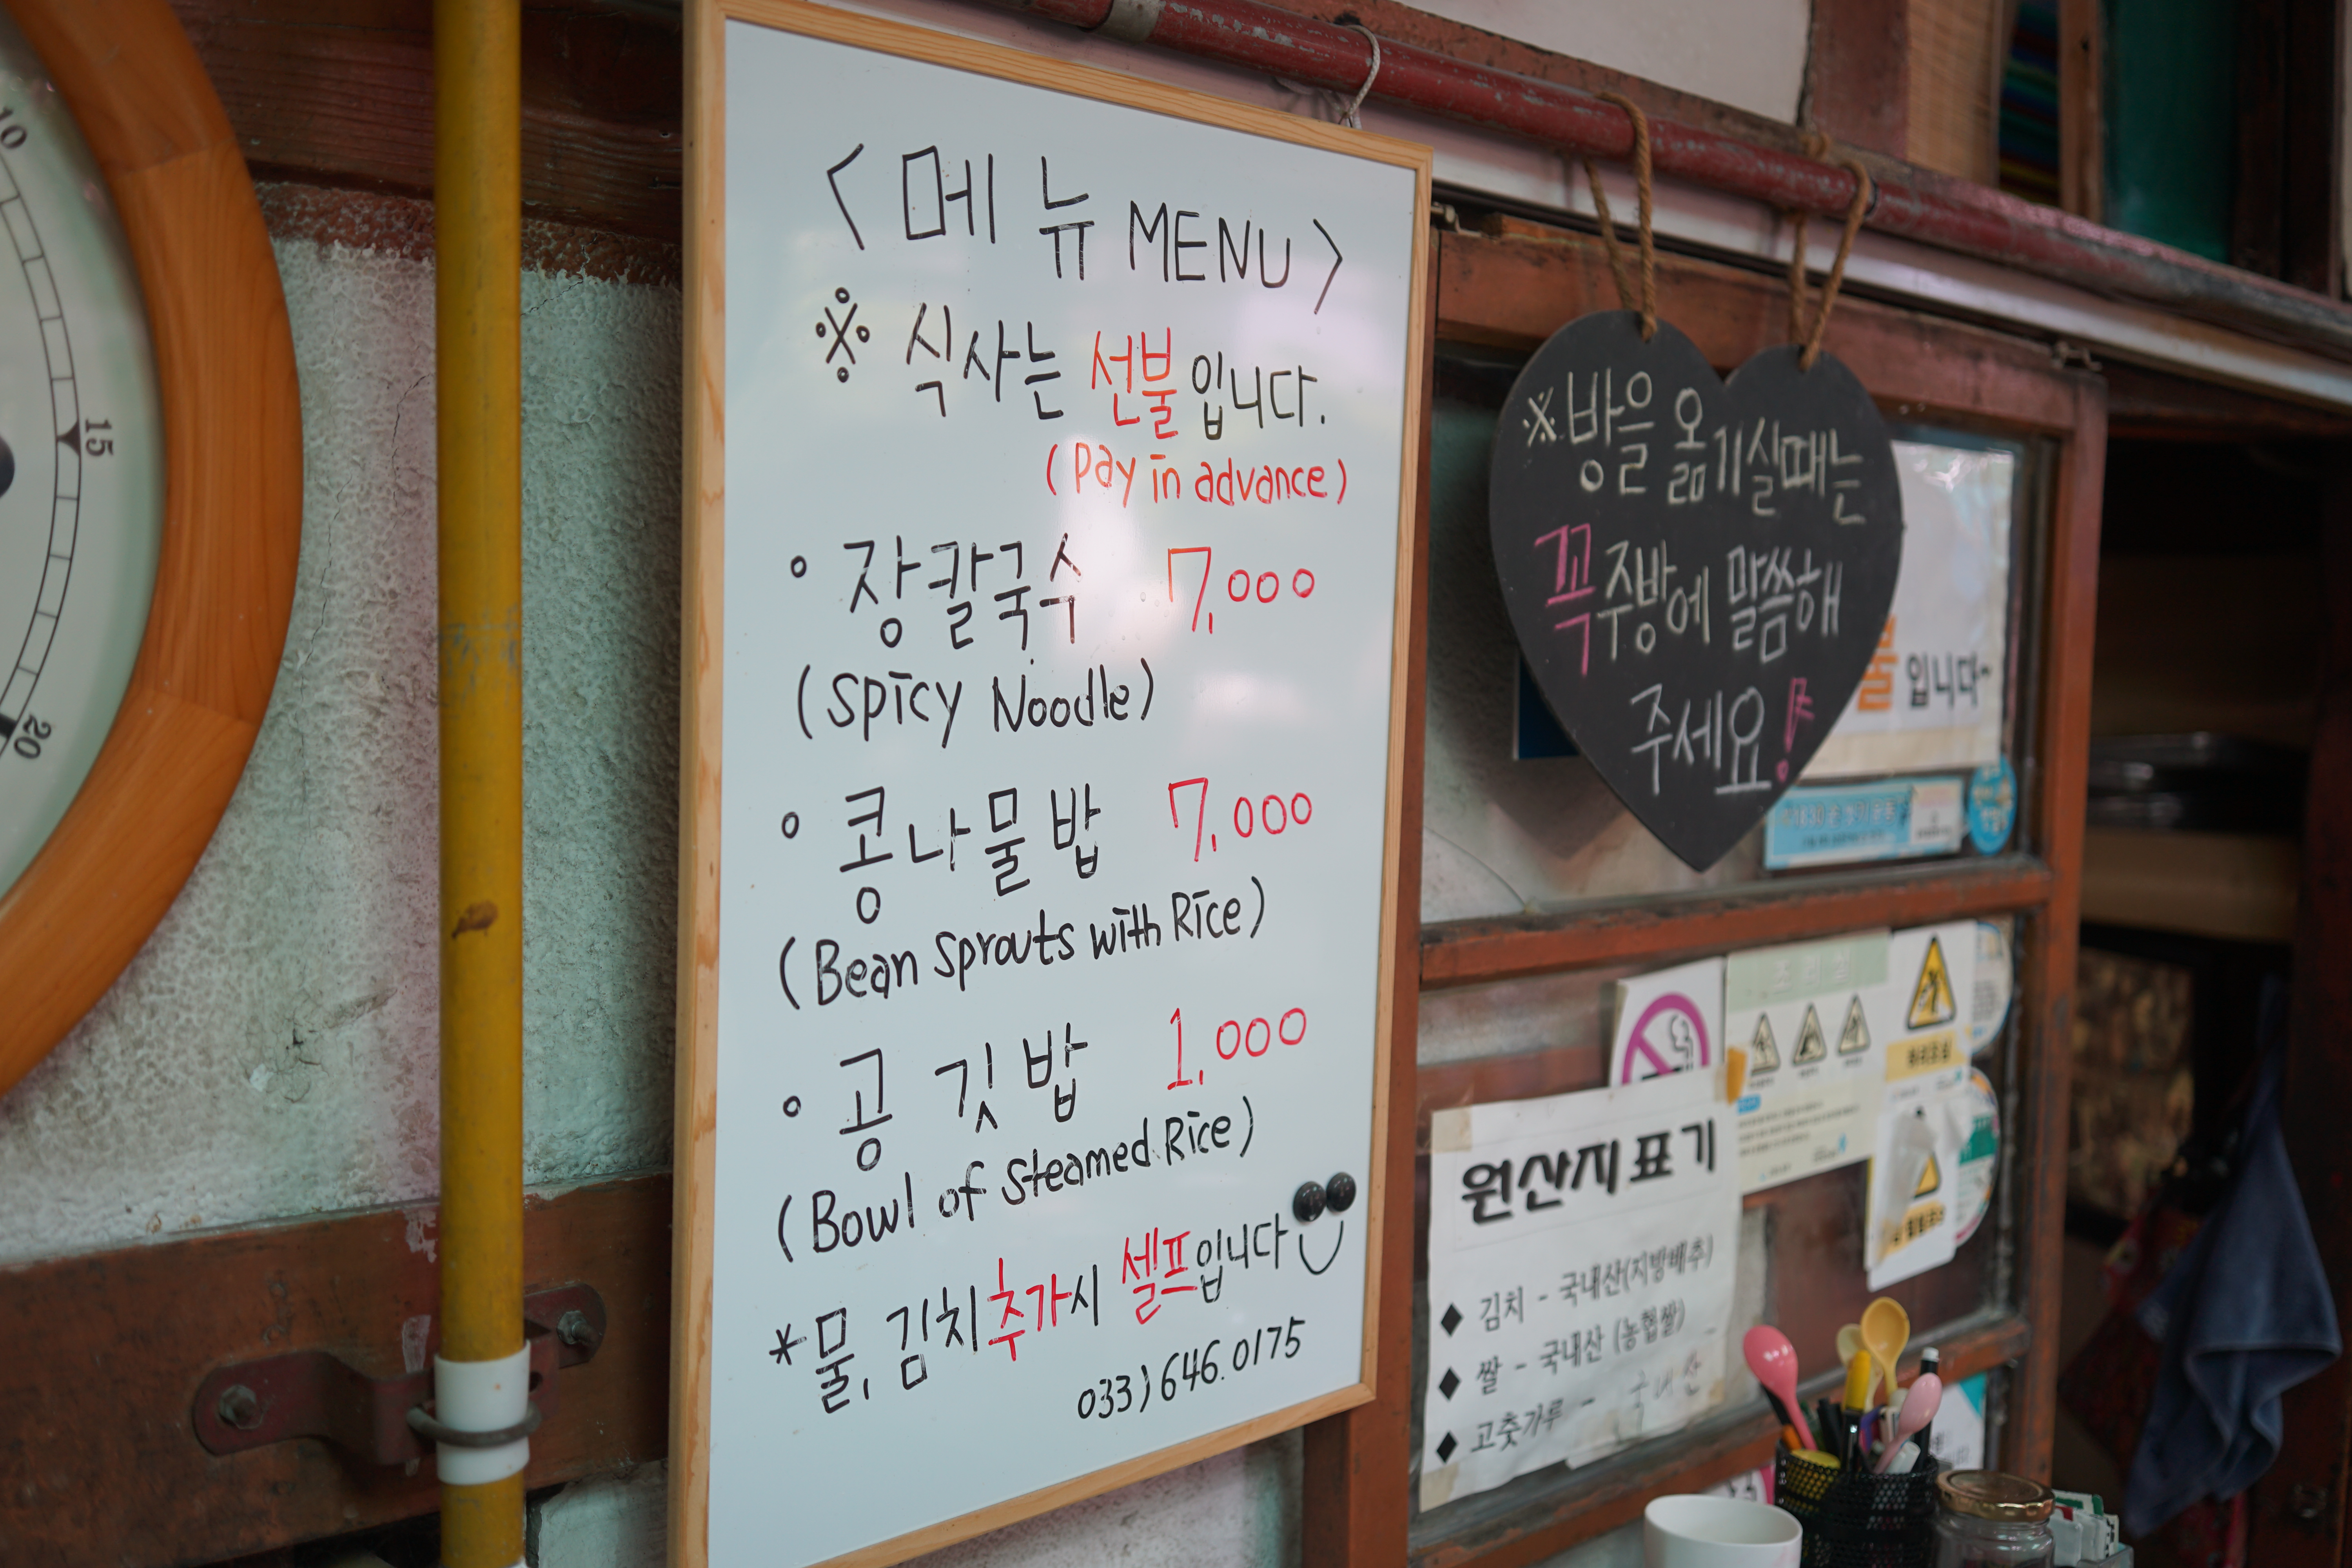 10
15
20
<메뉴 MENU>
※ 식사는 선불입니다.
(Pay in advance)
° 장칼국수 7,000
(Spicy Noodle)
° 콩나물밥 7,000
(Bean Sprouts with Rice)
° 공깃밥 1,000
(Bowl of Steamed Rice)
*물, 김치추가시 셀프입니다
033)646.0175
※방을 옮기실때는
꼭 주방에 말씀해
주세요!
입니다~
원산지 표기
◆ 김치 - 국내산(지방배추)
◆ 쌀 - 국내산 (농협쌀)
◆ 고춧가루 - 국내산